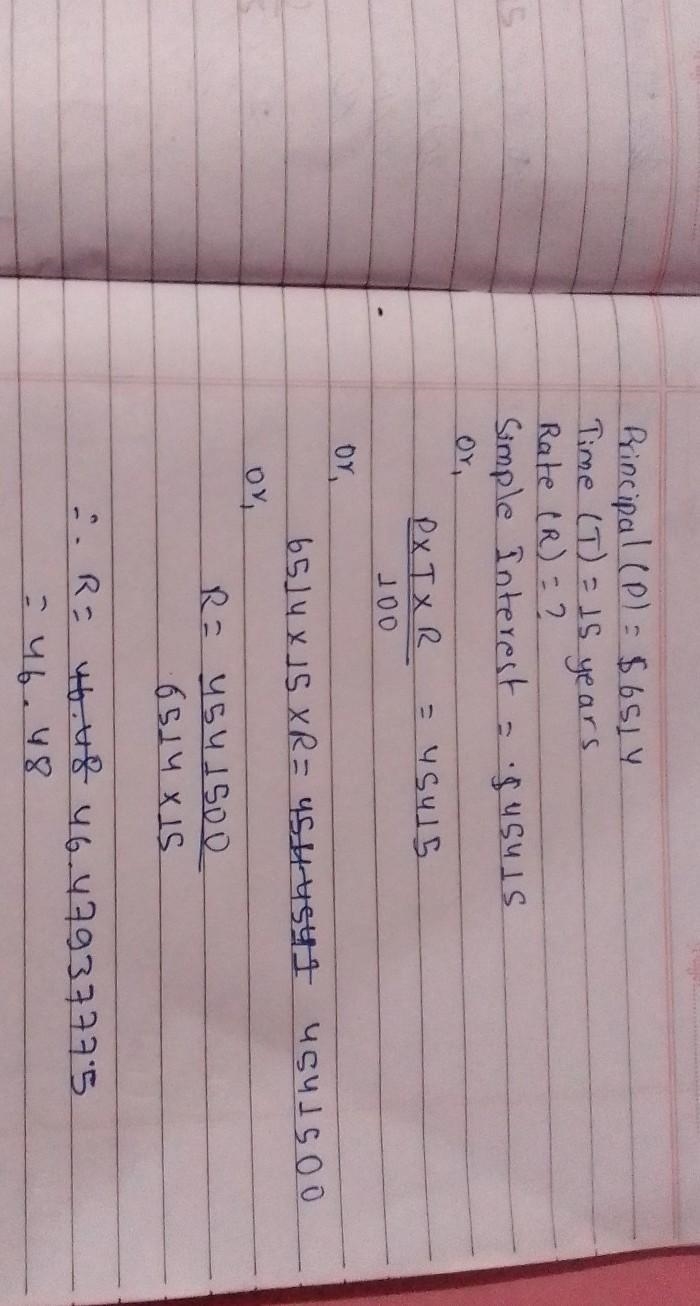 Principal (P) = $ 6514
Time (T) = 15 years
Rate (R) = ?
Simple Interest = $ 45415
or,
P×T×R = 45415
100
or,
6514×15×R = 4541500
or,
R = 4541500
6514×15
∴ R = 46.48 46.4793777.5
= 46.48